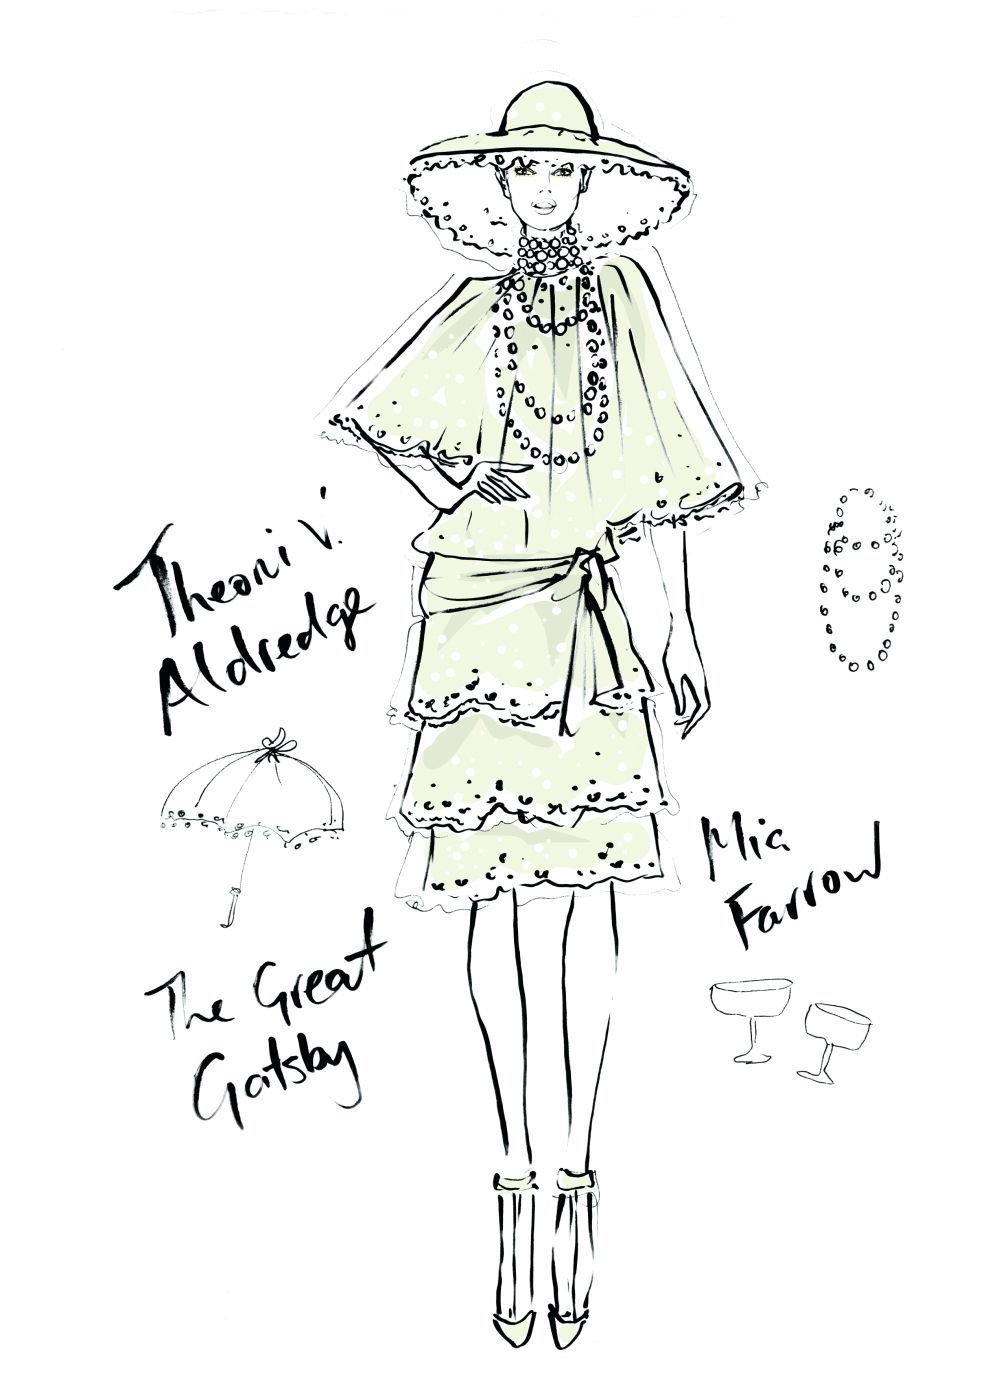 Theoni V.
Aldredge
Mia
Farrow
The Great
Gatsby